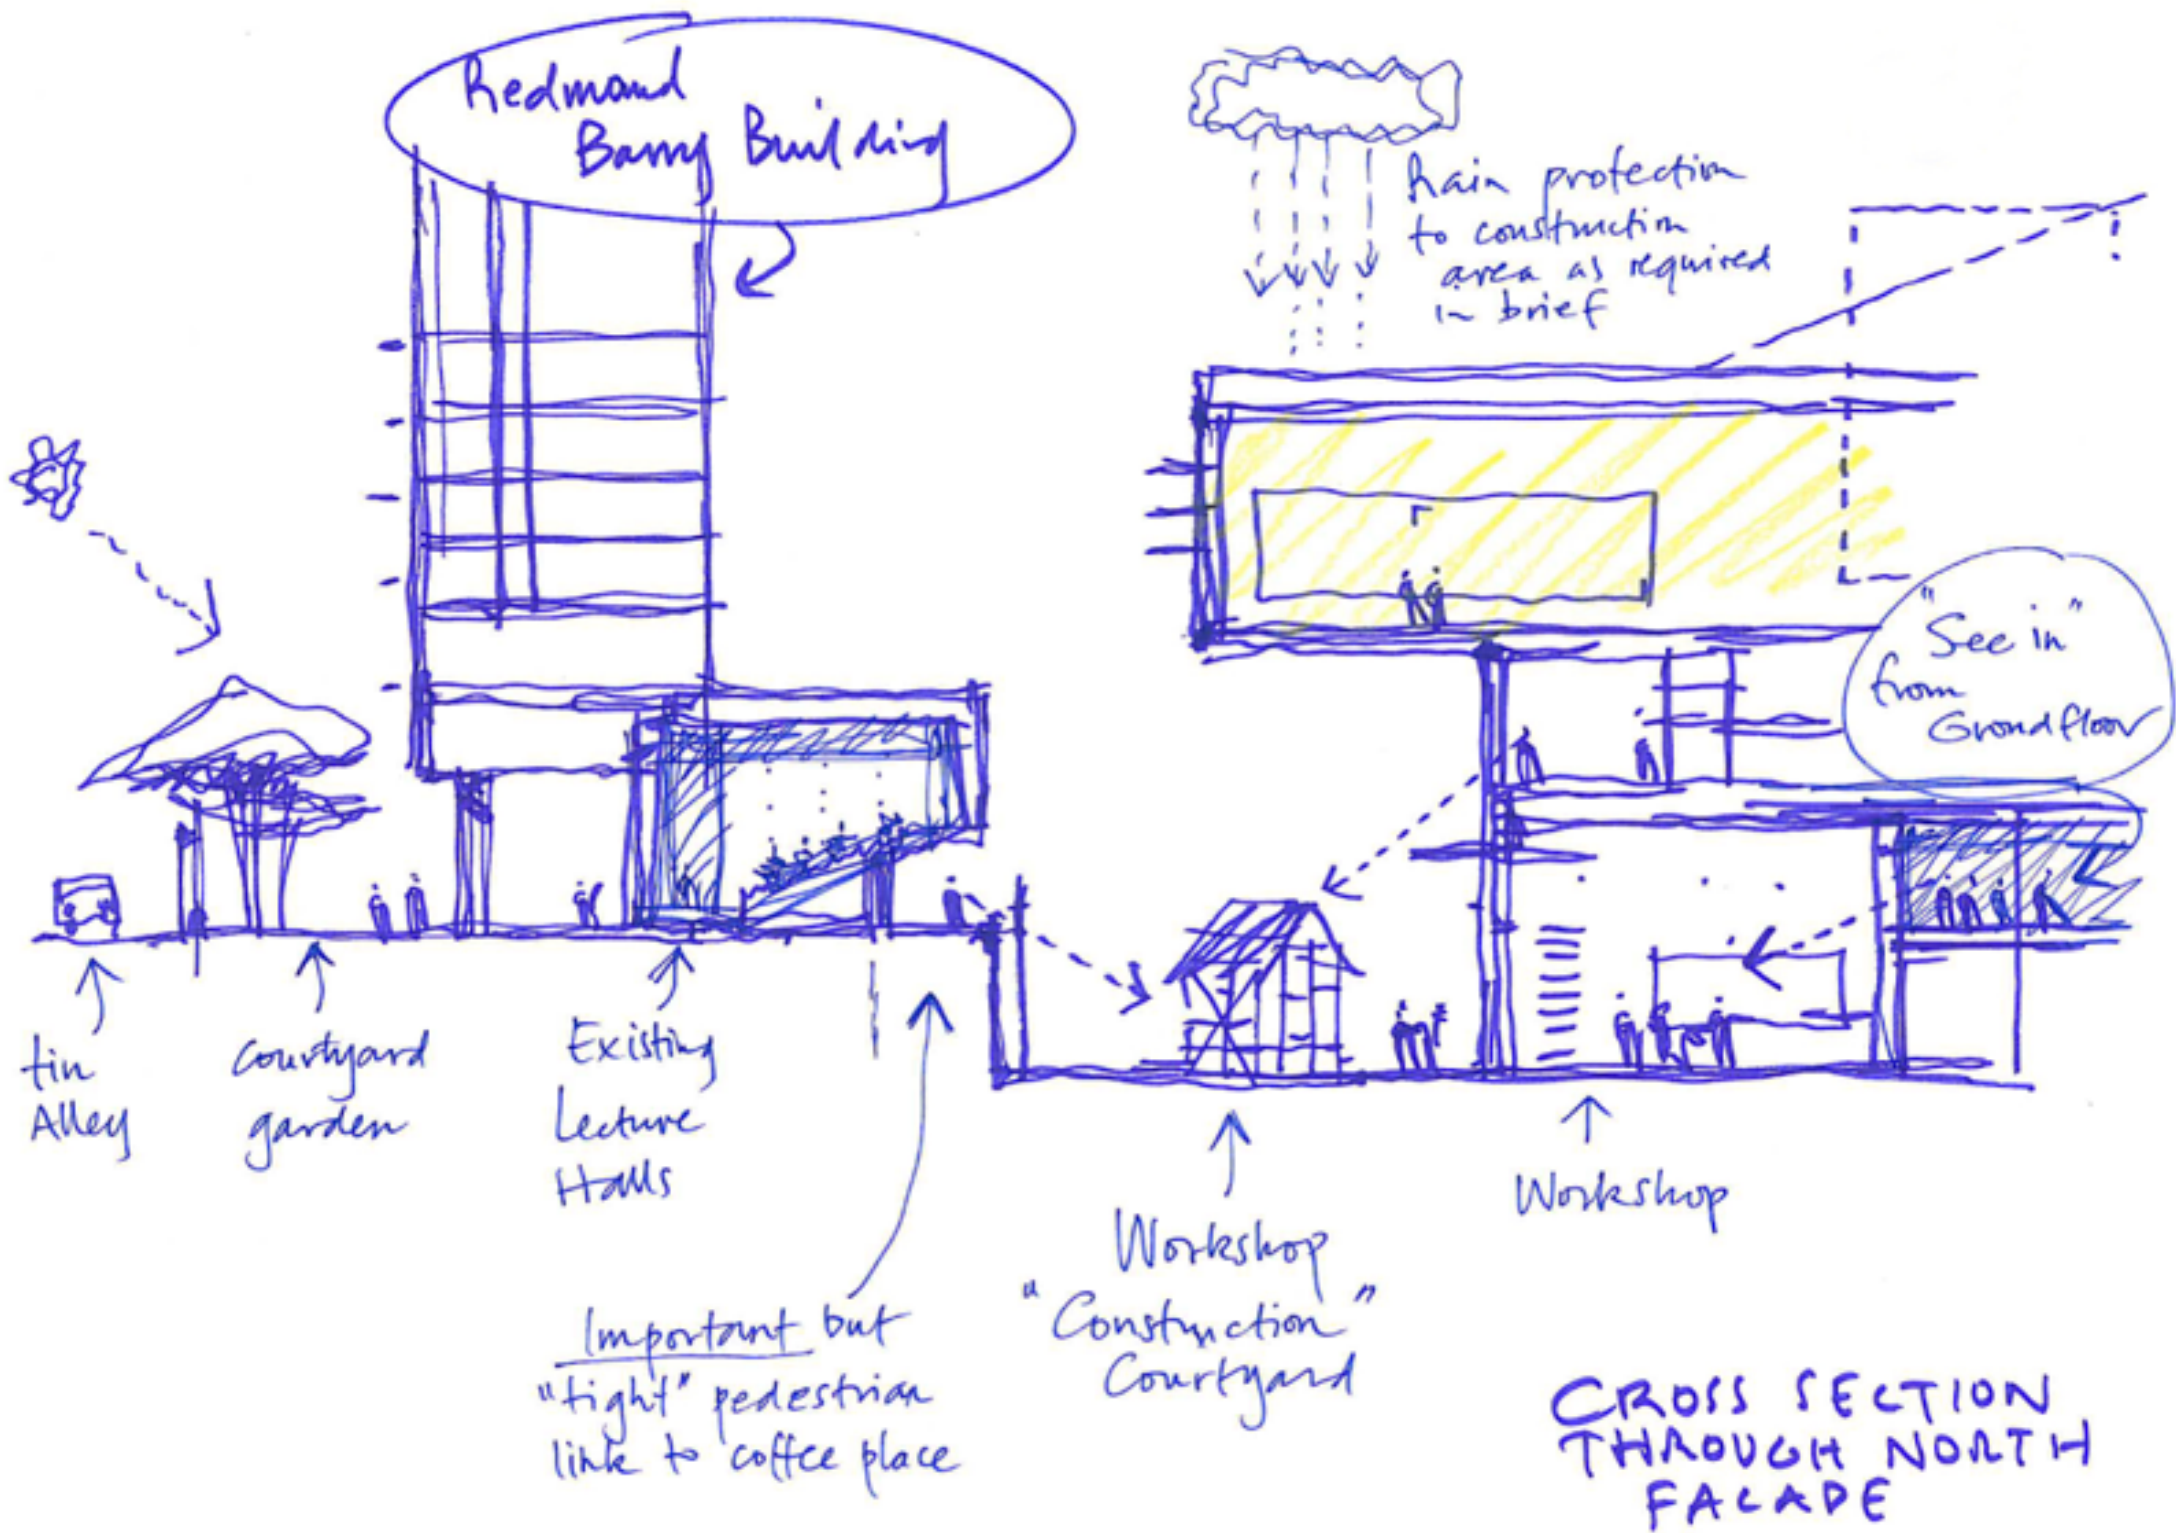 Redmond
Barry Building
Rain protection
to construction
area as required
in brief
"See in"
from
Grondfloor
tin
Alley
Courtyard
garden
Existing
Lecture
Halls
Important but
"tight" pedestrian
link to coffee place
Workshop
"Construction"
Courtyard
Workshop
CROSS SECTION
THROUGH NORTH
FACADE